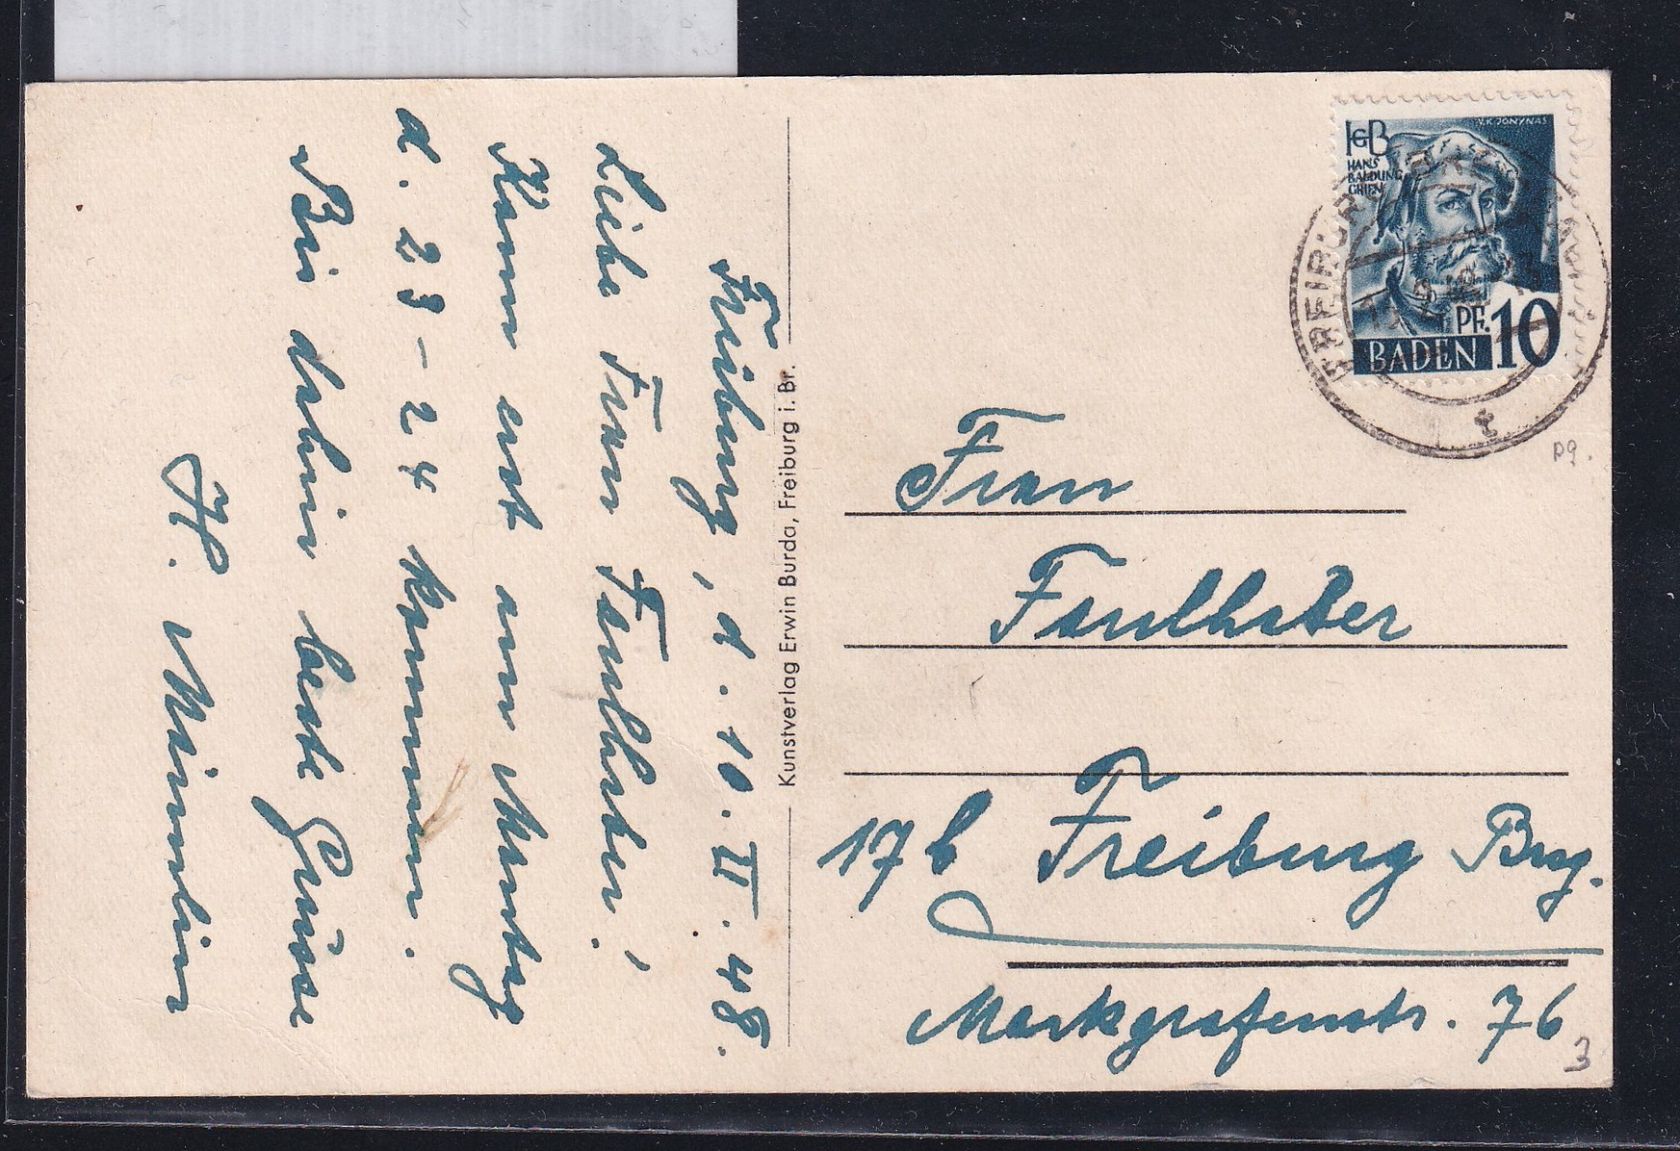 Freiburg, d. 10. II. 48.
Liebe Frau Faulhaber!
Kann erst am Montag
d. 23-24 kommen.
Bis dahin beste Grüsse
H.
Kunstverlag Erwin Burda, Freiburg i. Br.
V.K. JONYNAS
HGB
HANS
BALDUNG
GRIEN
PF. 10
BADEN
FREIBURG
Frau
Faulhaber
17b Freiburg Brsg.
Markgrafenstr. 76
pg.
3